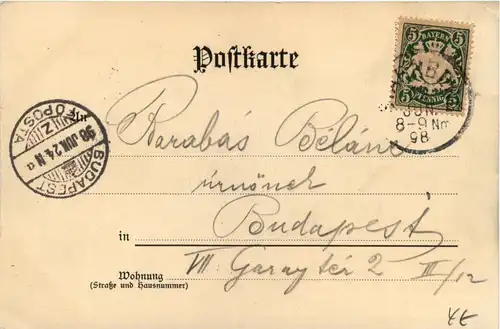 Postkarte
BAYERN
5 5
5 PFENNIG 5
8-9 Nm
98
BUDAPEST
98 JUN. 24. N
FŐPOSTA
An Barabás Béláné
úrnőnek
in Budapest
Wohnung VII. Garay tér 2 II/12
(Straße und Hausnummer)